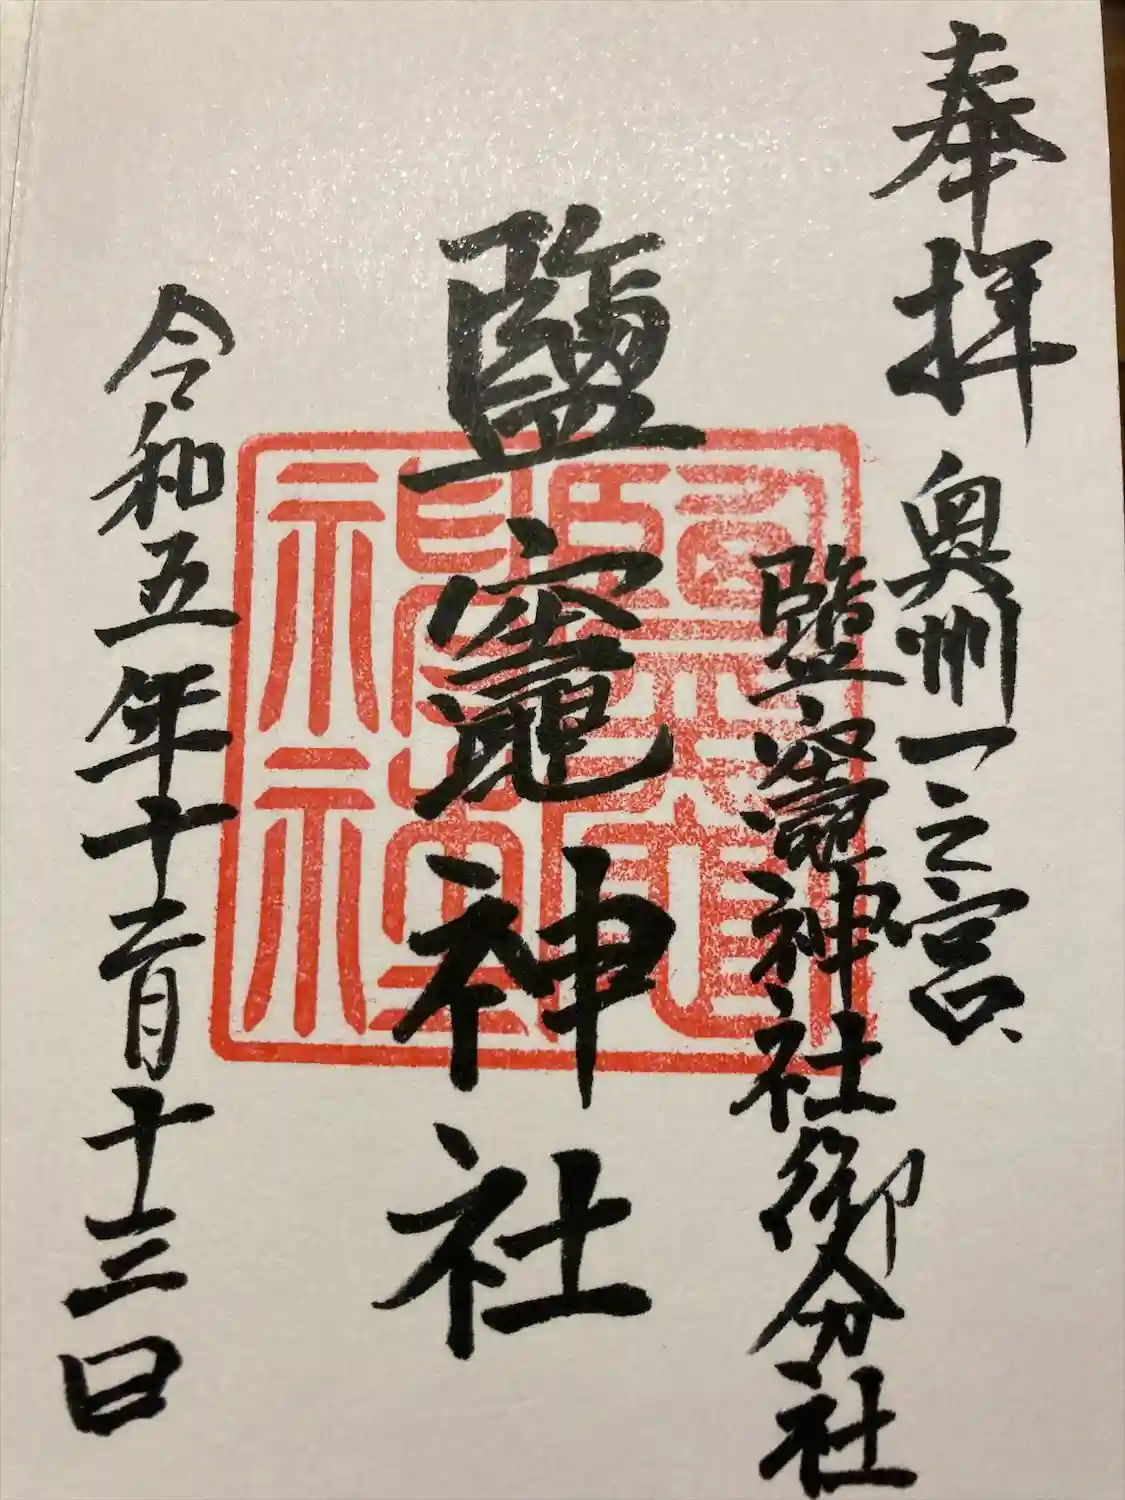 奉拝 奥州一之宮
鹽竈神社御分社
鹽竈神社
鹽竈神社
令和五年十二月十三日